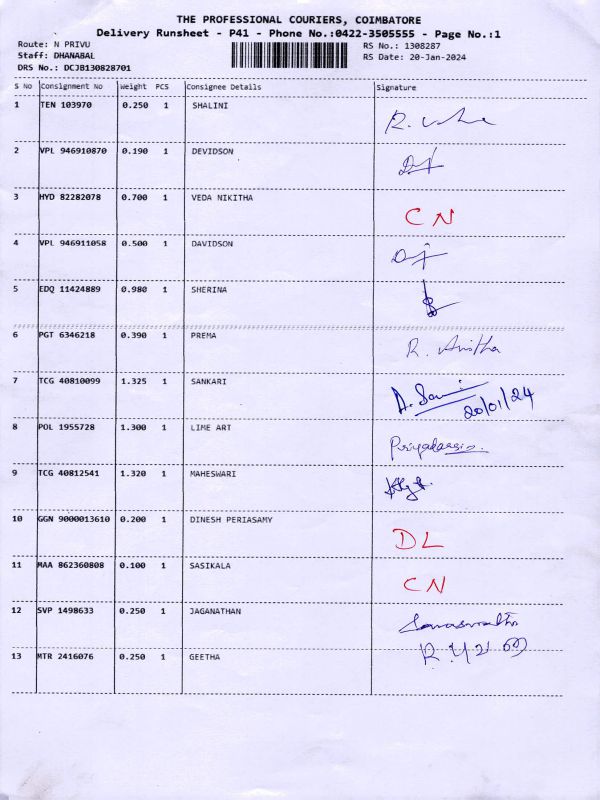 THE PROFESSIONAL COURIERS, COIMBATORE
Delivery Runsheet - P41 - Phone No.:0422-3505555 - Page No.:1
Route: N PRIVU RS No.: 1308287
Staff: DHANABAL RS Date: 20-Jan-2024
DRS No.: DCJB130828701
S No Consignment No Weight PCS Consignee Details Signature
1 TEN 103970 0.250 1 SHALINI
2 VPL 946910870 0.190 1 DEVIDSON
3 HYD 82282078 0.700 1 VEDA NIKITHA CN
4 VPL 946911058 0.500 1 DAVIDSON
5 EDQ 11424889 0.980 1 SHERINA
6 PGT 6346218 0.390 1 PREMA R. Anitha
7 TCG 40810099 1.325 1 SANKARI 20/01/24
8 POL 1955728 1.300 1 LIME ART
9 TCG 40812541 1.320 1 MAHESWARI
10 GGN 9000013610 0.200 1 DINESH PERIASAMY DL
11 MAA 862360808 0.100 1 SASIKALA CN
12 SVP 1498633 0.250 1 JAGANATHAN
13 MTR 2416076 0.250 1 GEETHA